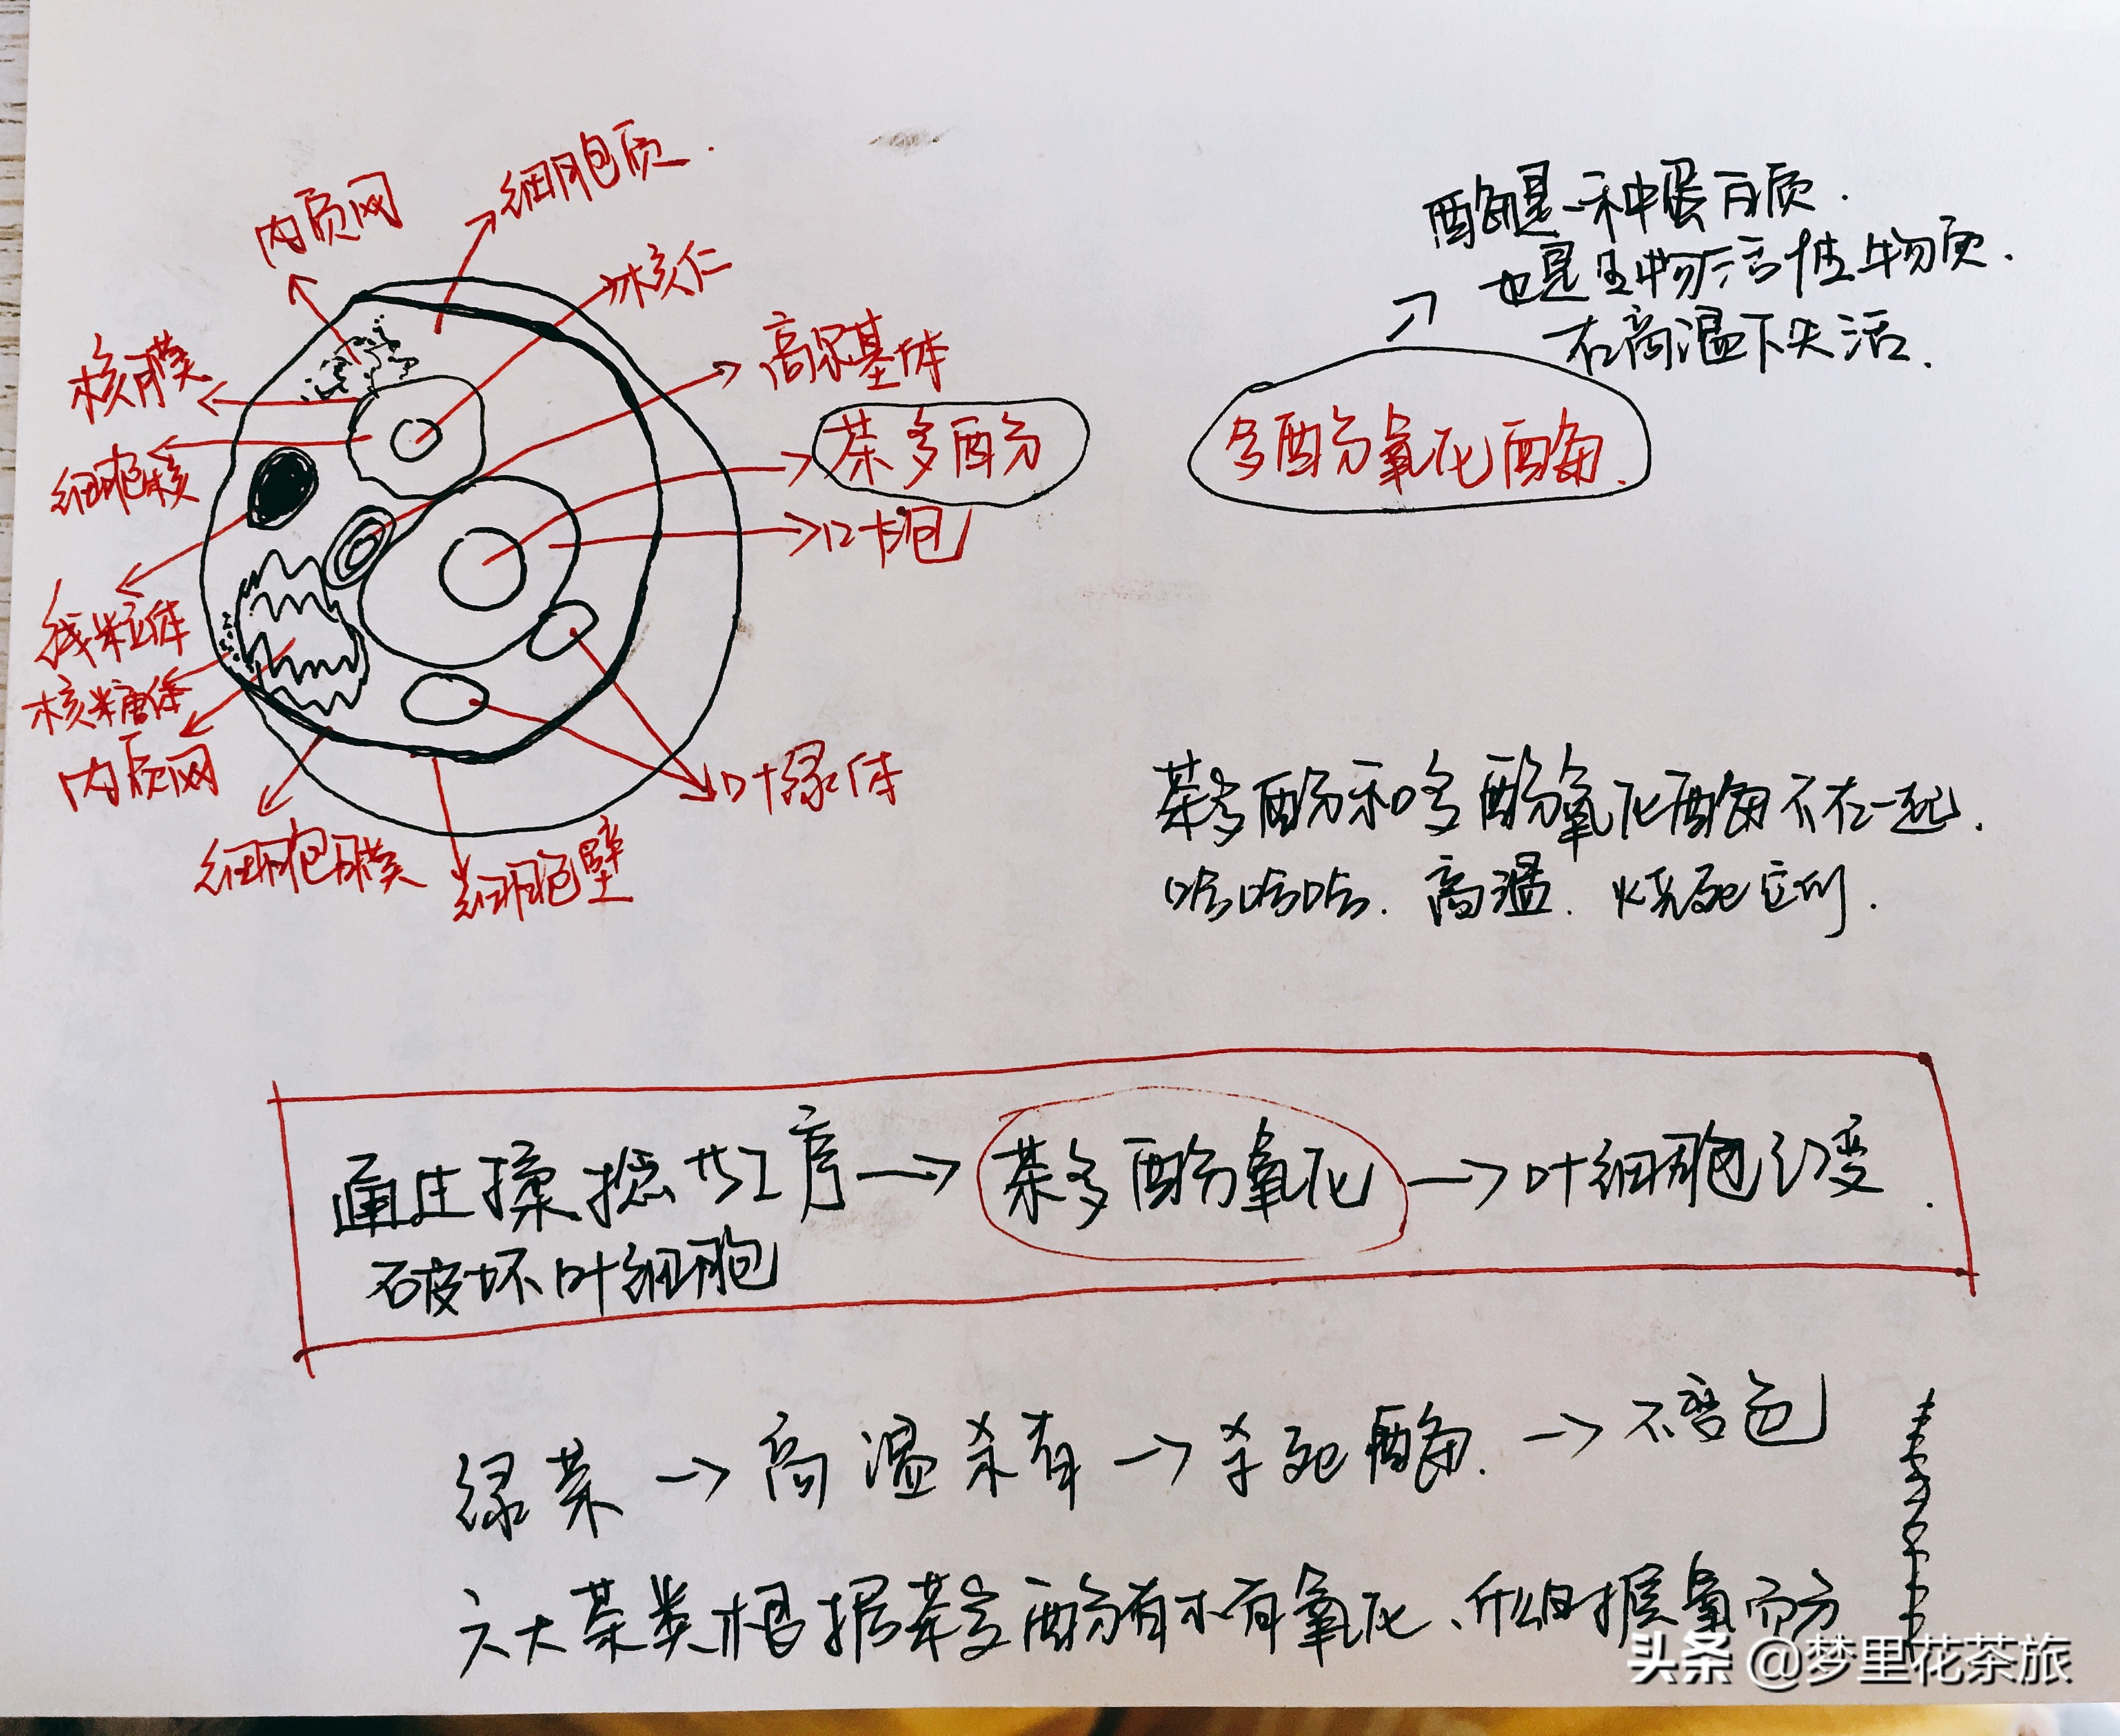 细胞质
内质网
核仁
核膜
高尔基体
细胞核
茶多酚
液泡
线粒体
核糖体
内质网
叶绿体
细胞膜
细胞壁
酶是一种蛋白质.
也是生物活性物质.
在高温下失活.
多酚氧化酶.
茶多酚和多酚氧化酶不在一起.
哈哈哈.高温.烧死它们.
通过揉捻等工序→茶多酚氧化→叶细胞红变.
破坏叶细胞
绿茶→高温杀青→杀死酶.→不变色
六大茶类根据茶多酚有没有氧化、
氧
而分
头条 @梦里花茶旅